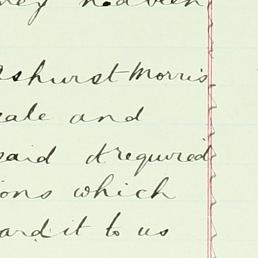 ney had been
shurst Morris
eale and
said it required
ions which
ard it to us